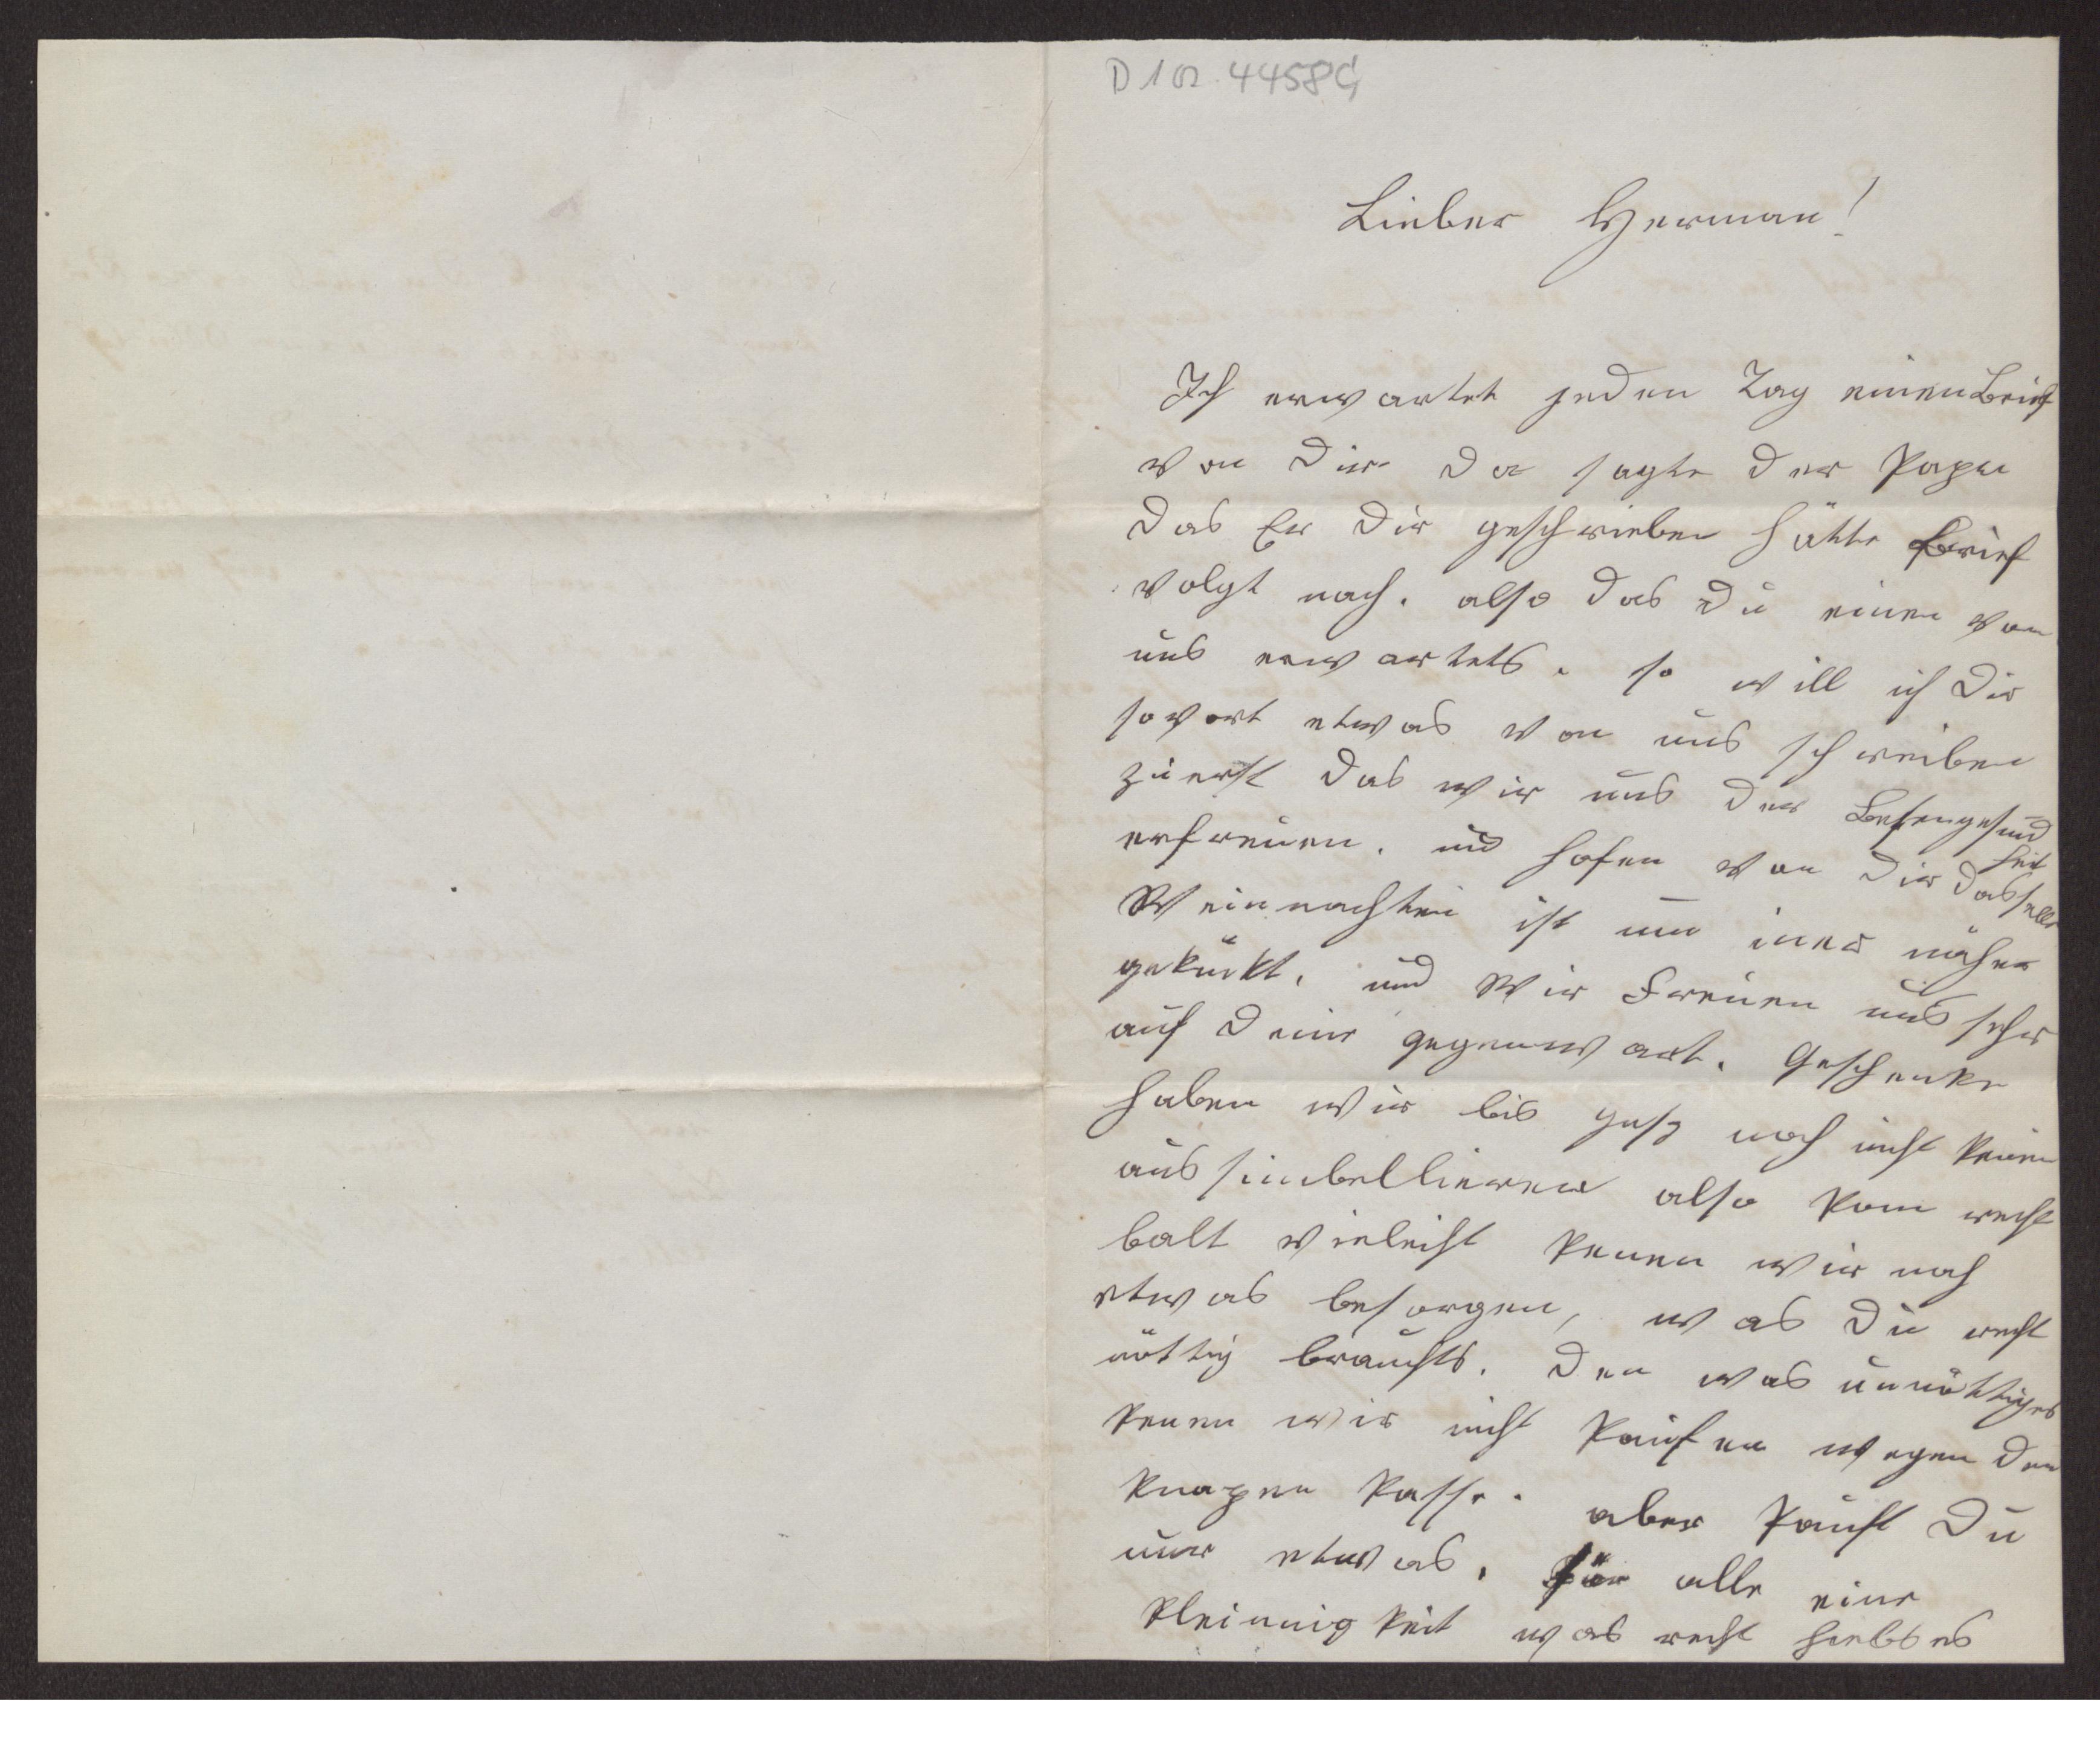 D 102. 4458G
Lieber Herman!
Ich erwartet jeden Tag einen Brief
von Dir da sagte der Papa
das Er Dir geschrieben hätte Brief
volgt nach. also das Du einen von
uns erwartets. so will ich Dir
sovort etwas von uns schreiben
zuerst das wir uns der Besengesund
heit
erfreuen. und hofen von Dir dasselbe
Weinnachten ist nun imer näher
gerückt. und Wir Freuen uns sehr
auf Deine gegenwart. Geschenke
haben wir bis gest noch nicht kenen
aussimbellieren also kom recht
balt vieleicht kenen wir noch
etwas besorgen, was Du recht
nöttig brauchts. den was unnöttiges
kenen wir nicht kaufen wegen den
knapen kasse. aber kaufst Du
nur etwas. für alle eine
kleinnigkeit was recht